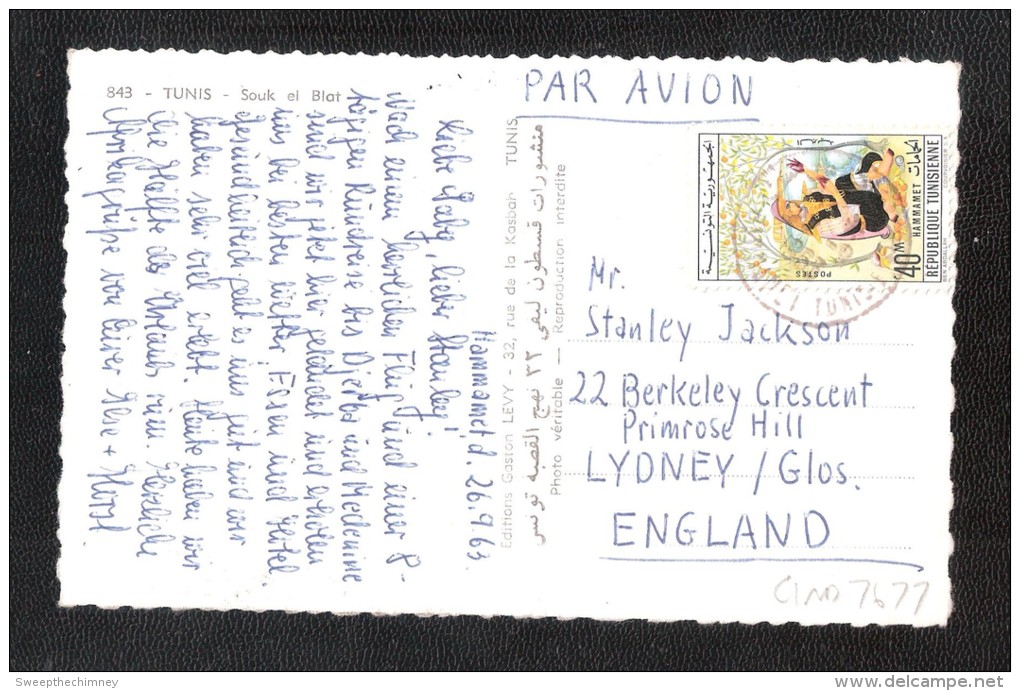 843 - TUNIS - Souk el Blat
PAR AVION
Hammamet d. 26.9.63
Liebe Gaby, lieber Stanley!
Nach einem herrlichen Flug und einer 8-
tägigen Rundreise bis Djerba und Medenine
sind wir jetzt hier gelandet und erholen
uns bei bester Luft, Essen und Hotel.
Gesundheitlich geht es uns gut und wir
haben sehr viel erlebt. Heute haben wir
die Hälfte des Urlaubs rum. Herzliche
Afrikagrüße von Eurer Ilse + Horst
Editions Gaston LÉVY - 32, rue de la Kasbah TUNIS
منشورات قسطون ليفى ٣٢ نهج القصبه تونس
Photo véritable — Reproduction interdite
الجمهورية التونسية
الحمامات
HAMMAMET
RÉPUBLIQUE TUNISIENNE
40M
POSTES
TUNIS
Mr.
Stanley Jackson
22 Berkeley Crescent
Primrose Hill
LYDNEY / Glos.
ENGLAND
7677
Sweepthechimney
delcampe.net